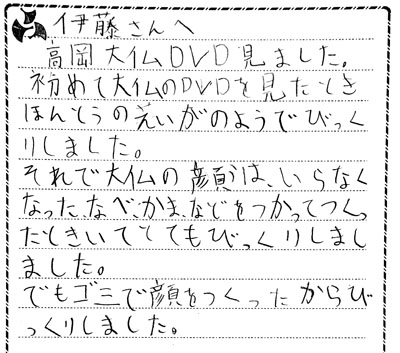 伊藤さんへ
高岡大仏DVD見ました。
初めて大仏のDVDを見たとき
ほんとうのえいがのようでびっく
りしました。
それで大仏の顔は、いらなく
なった、なべ、かま、などをつかってつくっ
たときいてとてもびっくりしまし
ました。
でもゴミで顔をつくったからび
っくりしました。